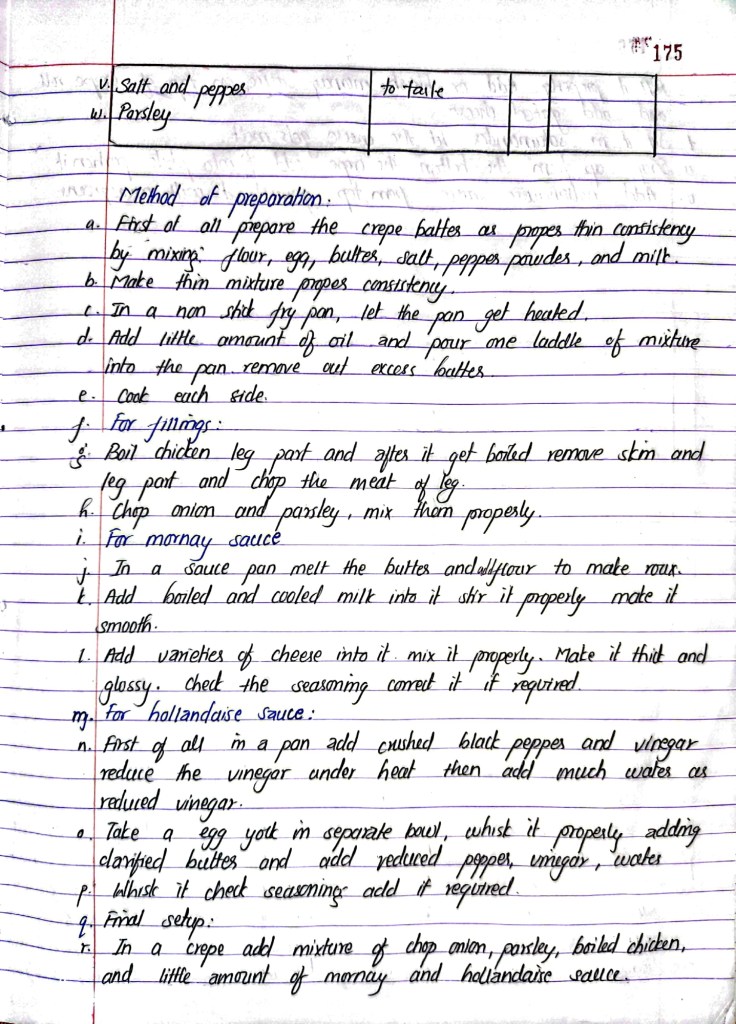 175
v. Salt and pepper to taste
w. Parsley
Method of preparation:
a. First of all prepare the crepe batter as proper thin consistency
by mixing: flour, egg, butter, salt, pepper powder, and milk.
b. Make thin mixture proper consistency.
c. In a non stick fry pan, let the pan get heated.
d. Add little amount of oil and pour one laddle of mixture
into the pan. remove out excess batter.
e. Cook each side.
f. For fillings:
g. Boil chicken leg part and after it get boiled remove skin and
leg part and chop the meat of leg.
h. Chop onion and parsley, mix them properly.
i. For mornay sauce
j. In a sauce pan melt the butter and add flour to make roux.
k. Add boiled and cooled milk into it stir it properly make it
smooth.
l. Add varieties of cheese into it. mix it properly. Make it thick and
glossy. Check the seasoning correct it if required.
m. For hollandaise sauce:
n. First of all in a pan add crushed black pepper and vinegar
reduce the vinegar under heat then add much water as
reduced vinegar.
o. Take a egg yolk in separate bowl, whisk it properly adding
clarified butter and add reduced pepper, vinegar, water
p. Whisk it check seasoning add if required.
q. Final setup:
r. In a crepe add mixture of chop onion, parsley, boiled chicken,
and little amount of mornay and hollandaise sauce.